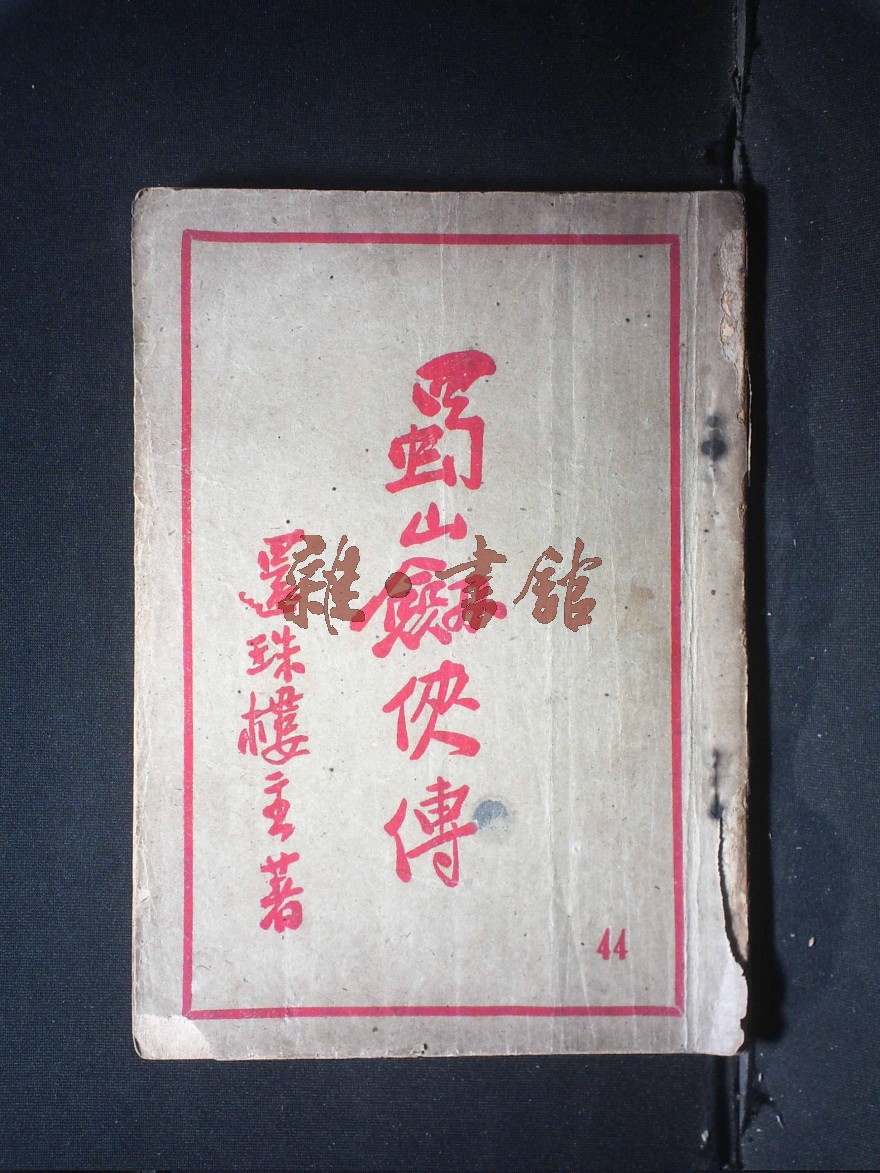 蜀山劍俠傳
還珠樓主著
44
雜·書館